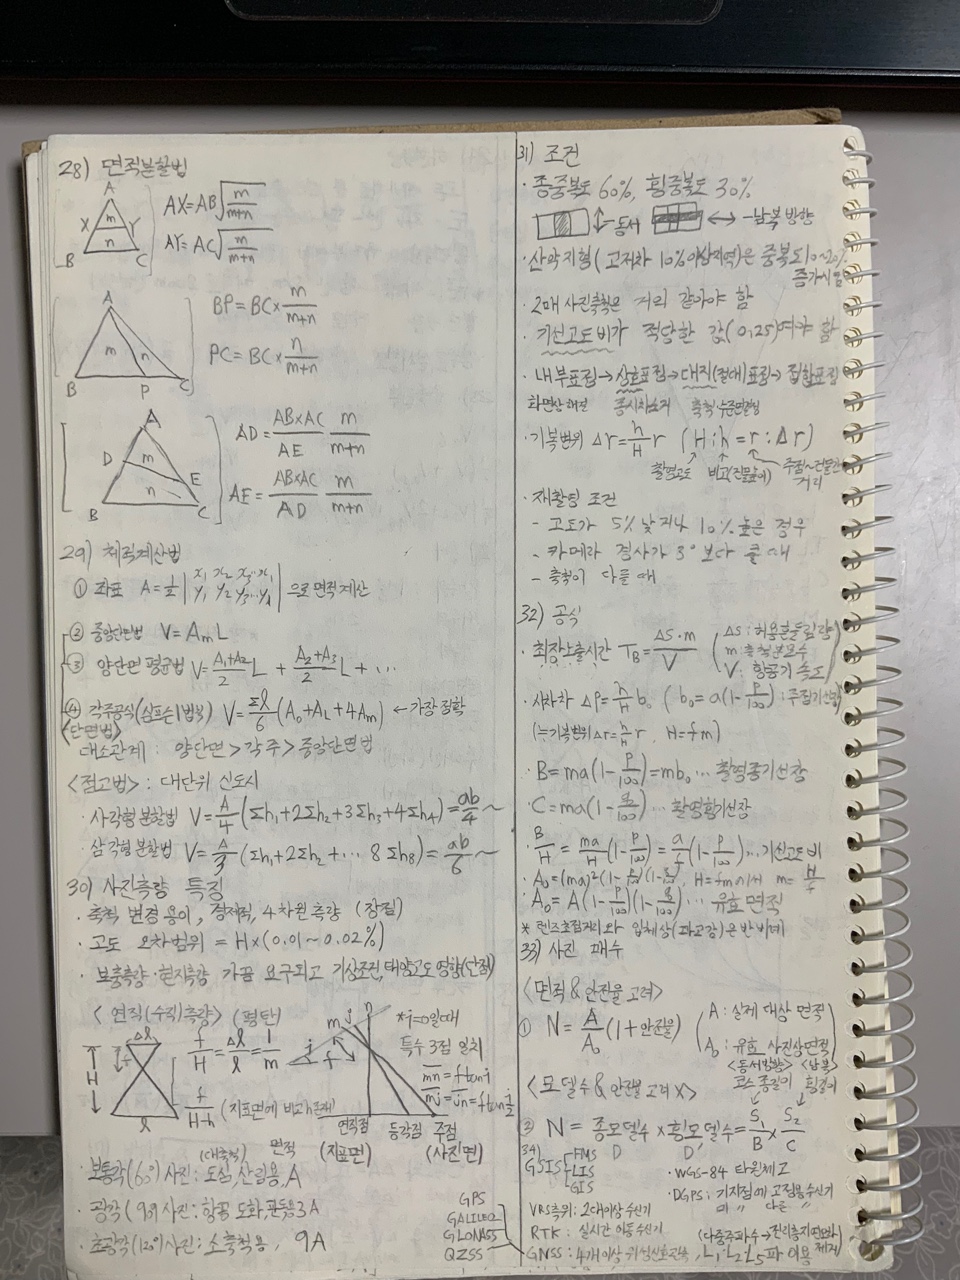 28) 면적분할법
A
X
m
Y
n
B
C
AX=AB√m/m+n
AY=AC√m/m+n
A
m
n
B
P
C
BP=BC×m/m+n
PC=BC×n/m+n
A
D
m
E
n
B
C
AD=AB×AC/AE m/m+n
AE=AB×AC/AD m/m+n
29) 체적계산법
① 좌표 A=1/2 | x₁ x₂ x₃…x₁ / y₁ y₂ y₃…y₁ | 으로 면적계산
② 중앙단면법 V=AmL
③ 양단면 평균법 V=A₁+A₂/2 L + A₂+A₃/2 L+…
④ 각주공식(심프슨 1법칙) V=Σl/6(A₀+A₂+4Am) ←가장 정확
<단면법>
대소관계: 양단면>각주>중앙단면법
<점고법>: 대단위 신도시
·사각형분할법 V=A/4(Σh₁+2Σh₂+3Σh₃+4Σh₄)=ab/4~
·삼각형분할법 V=A/3(Σh₁+2Σh₂+…8Σh₈)=ab/6~
30) 사진측량 특징
·축척 변경 용이, 정체적, 4차원 측량 (장점)
·고도 오차범위 = H×(0.01~0.02%)
·보충측량·현지측량 가끔 요구되고 기상조건, 태양고도 영향(단점)
<연직(수직)측량> (평탄)
Δl
f
H
l
f/H=Δl/l=1/m
f/H-h (지표면에 비고 h존재)
m j n
i
f
*i=0일때
특수 3점 일치
mn=f tan i
mj=jn=f tan i/2
연직점 등각점 주점
(지표면) (사진면)
(대축척) 면적
·보통각(60°)사진: 도심, 산림용, A
·광각(90°)사진: 항공 도화, 판독용 3A
·초광각(120°)사진: 소축척용, 9A
31) 조건
·종중복도 60%, 횡중복도 30%
↕동서
↔ -남북 방향
·산악지형(고저차 10%이상지역)은 중복도 10~20% 증가시킴
·2매 사진축척은 거리 같아야 함
·기선고도비가 적당한 값(0.25)여야 함
·내부표정→상호표정→대지(절대)표정→접합표정
종시차소거 축척·수준면결정
·기복변위 Δr=h/H r (H:h=r:Δr)
촬영고도 비고(건물높이) 주점~건물간 거리
·재촬영 조건
-고도가 5% 낮거나 10% 높은 경우
-카메라 경사가 3°보다 클 때
-축척이 다를 때
32) 공식
·최장노출시간 TB=ΔS·m/V (ΔS:허용흔들림량
m:축척분모수
V:항공기 속도)
·시차차 ΔP=h/H b₀ (b₀=a(1-P/100):주점기선장)
(≒기복변위 Δr=h/H r, H=fm)
·B=ma(1-P/100)=mb₀…촬영종기선장
·C=ma(1-q/100)…촬영횡기선장
·B/H=ma/H(1-P/100)=a/f(1-P/100)…기선고도비
·A₀=(ma)²(1-P/100)(1-q/100), H=fm에서 m=H/f
A₀=A(1-P/100)(1-q/100)…유효면적
*렌즈초점거리와 입체상(과고감)은 반비례
33) 사진 매수
<면적&안전율 고려>
① N=A/A₀(1+안전율) (A:실제 대상 면적
A₀:유효 사진상면적)
<동서방향> <남북>
코스종길이 횡길이
<모델수&안전율 고려x>
② N=종모델수×횡모델수=S₁/B×S₂/C
D D'
34)
GSIS
LIS
GIS
·WGS-84 타원체고
·DGPS: 기지점에 고정용 수신기
미〃 다른〃
VRS측위: 2대이상 수신기
RTK: 실시간 이동수신기
GPS
GALILEO
GLONASS
QZSS
GNSS: 4개이상 위성신호 , L₁·L₂·L₅파 이용